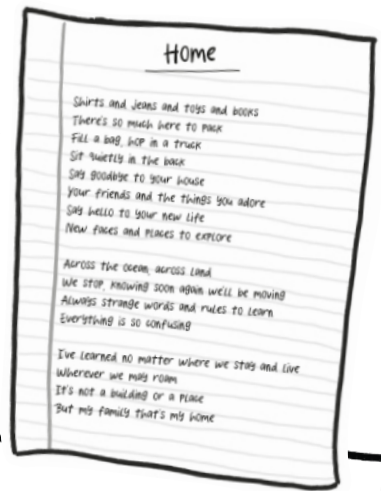 Home
Shirts and jeans and toys and books
There's so much here to pack
Fill a bag, hop in a truck
Sit quietly in the back
Say goodbye to your house
Your friends and the things you adore
Say hello to your new life
New faces and places to explore
Across the ocean, across land
We stop, knowing soon again we'll be moving
Always strange words and rules to learn
Everything is so confusing
I've learned no matter where we stay and live
Wherever we may roam
It's not a building or a place
But my family that's my home